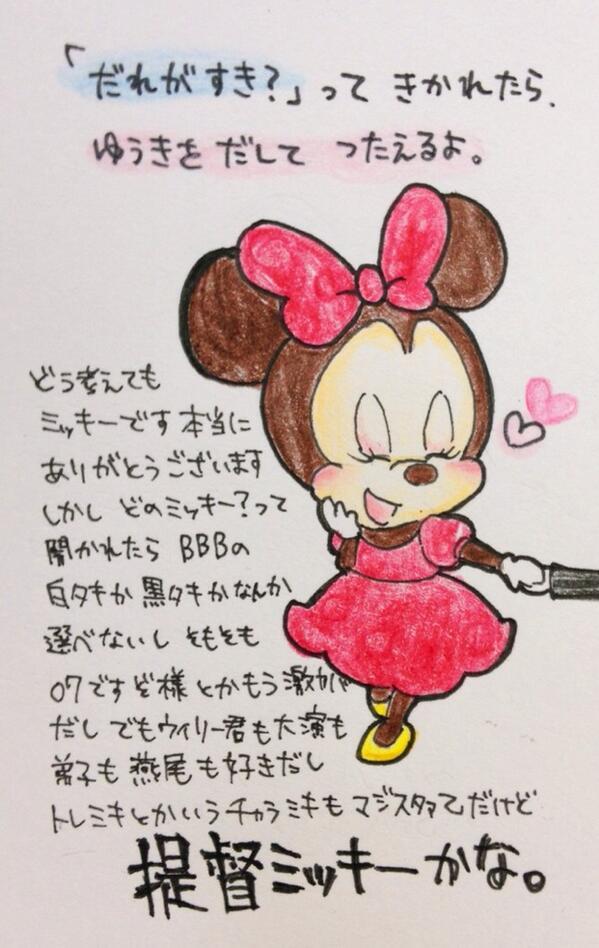 「だれがすき？」って きかれたら、
ゆうきを だして つたえるよ。
どう考えても
ミッキーです 本当に
ありがとうございます
しかし どのミッキー？って
聞かれたら BBBの
白タキか 黒タキかなんか
選べないし そもそも
07ですぞ様とかもう激カバ
だし でもウィリー君も大演も
弟子も 燕尾も好きだし
トレミキとかいうチャラミキも マジスタァてだけど
提督ミッキーかな。